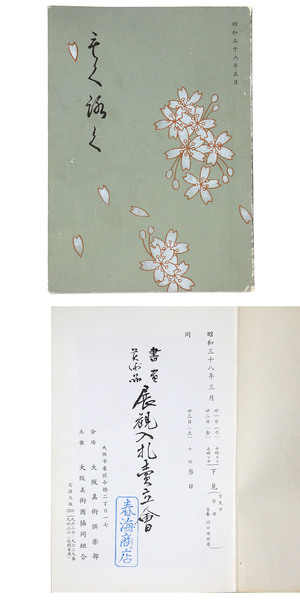 昭和三十八年三月
もくろく
昭和三十八年三月
廿一日(木)
廿二日(金)
下見
同
廿三日(土)
当日
書画
美術品
展観入札売立會
会場
大阪市東区今橋二丁目一七
大阪美術倶楽部
主催
大阪美術商協同組合
春海商店